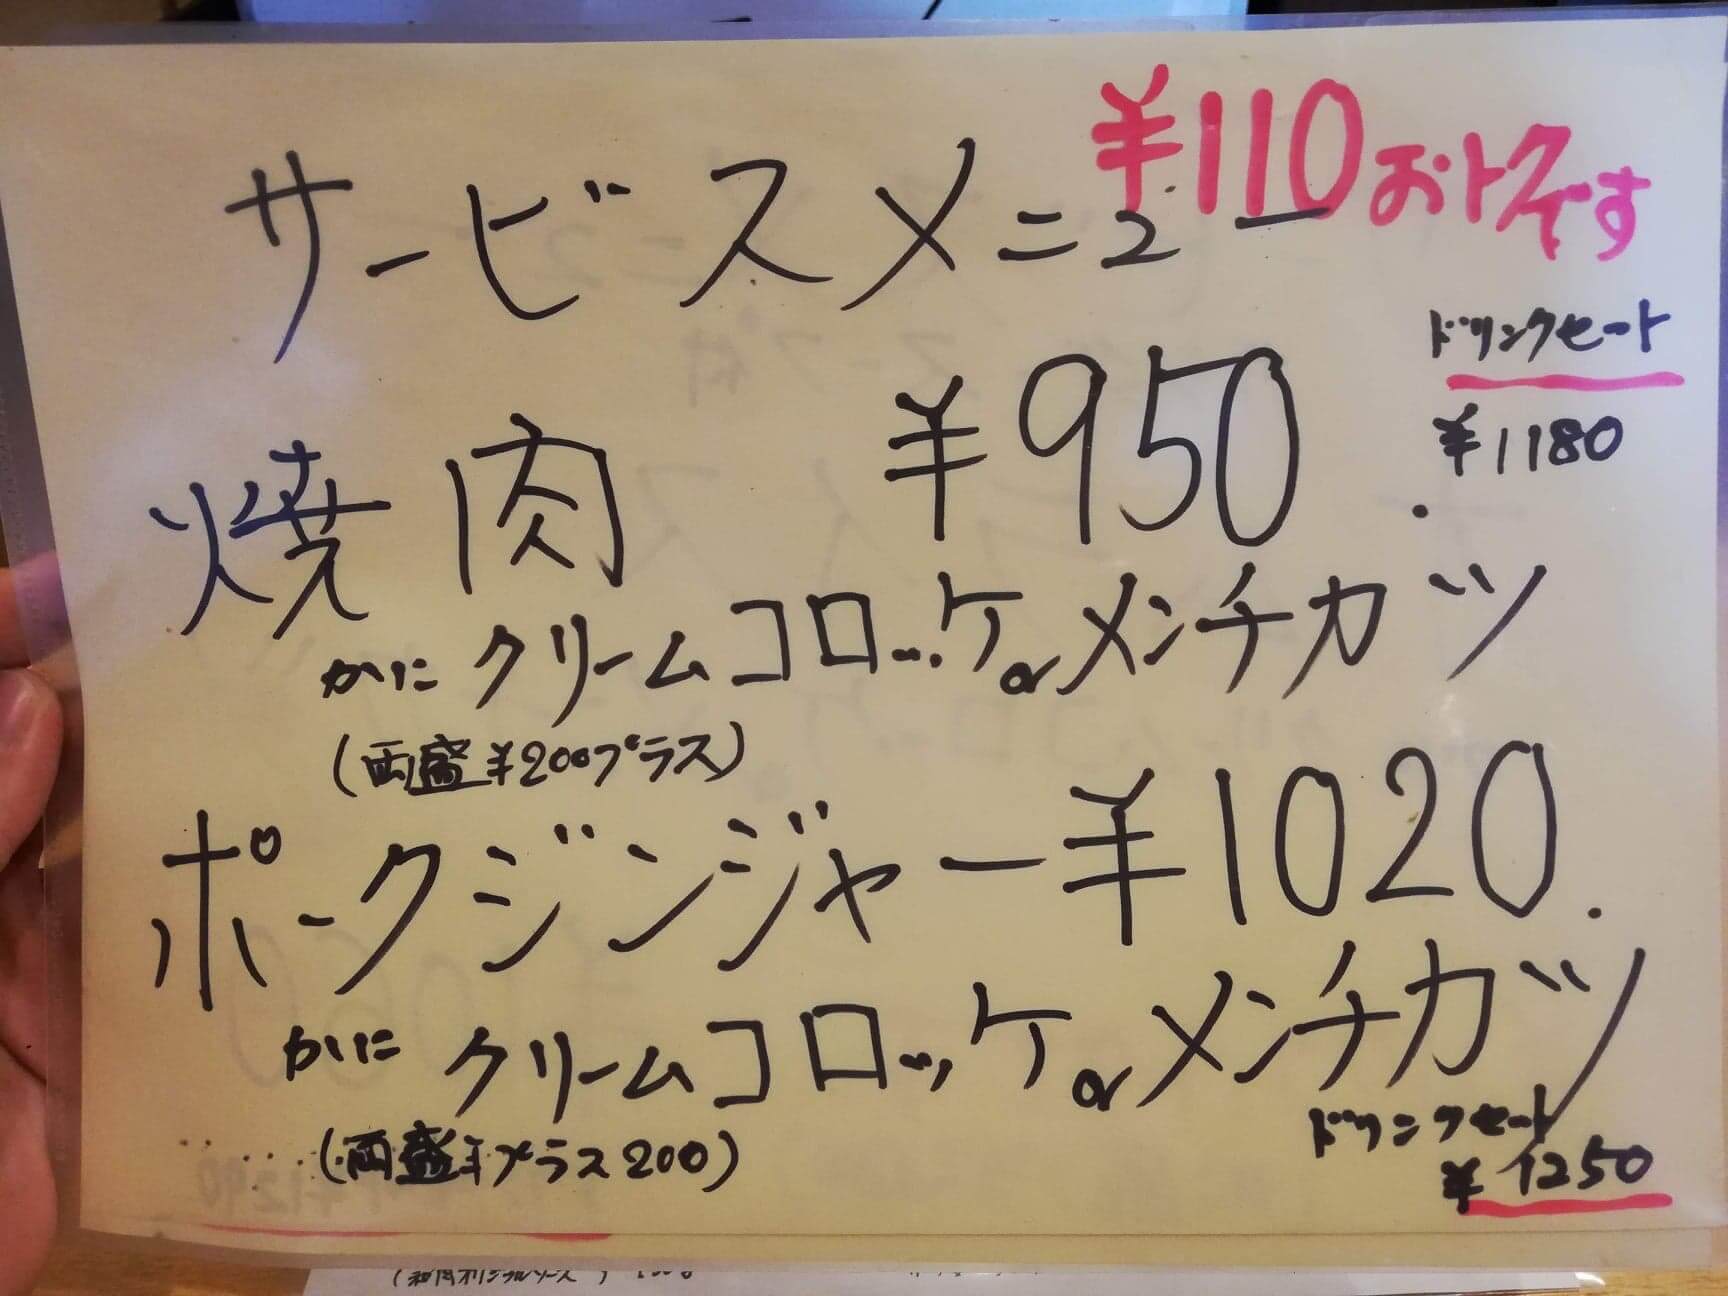 ¥110おトクです
サービスメニュー
ドリンクセット
¥1180
焼肉 ¥950.
かにクリームコロッケorメンチカツ
(両盛¥200プラス)
ポークジンジャー¥1020.
かにクリームコロッケorメンチカツ
(両盛¥プラス200)
ドリンクセット
¥1250